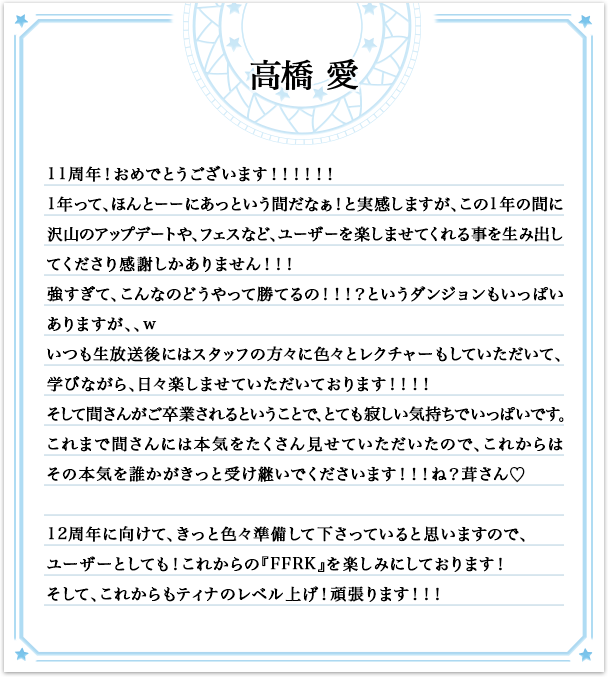 高橋 愛
11周年！おめでとうございます！！！！！！
1年って、ほんとーーにあっという間だなぁ！と実感しますが、この1年の間に
沢山のアップデートや、フェスなど、ユーザーを楽しませてくれる事を生み出し
てくださり感謝しかありません！！！
強すぎて、こんなのどうやって勝てるの！！！？というダンジョンもいっぱい
ありますが、、w
いつも生放送後にはスタッフの方々に色々とレクチャーもしていただいて、
学びながら、日々楽しませていただいております！！！！
そして間さんがご卒業されるということで、とても寂しい気持ちでいっぱいです。
これまで間さんには本気をたくさん見せていただいたので、これからは
その本気を誰かがきっと受け継いでくださいます！！！ね？茸さん♡
12周年に向けて、きっと色々準備して下さっていると思いますので、
ユーザーとしても！これからの『FFRK』を楽しみにしております！
そして、これからもティナのレベル上げ！頑張ります！！！